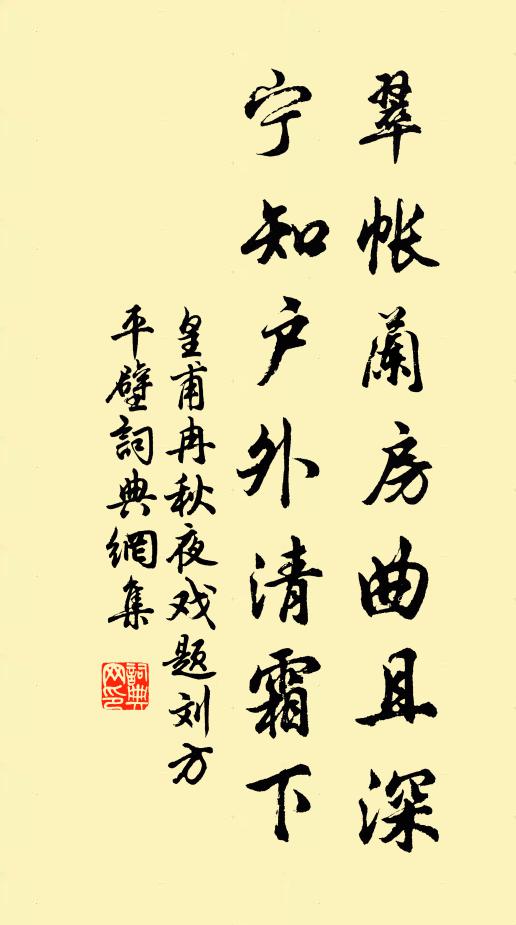 翠帐蘭房曲且深
宁知户外清霜下
皇甫冉秋夜戏题刘方
平壁詞典網集
詞典
网印